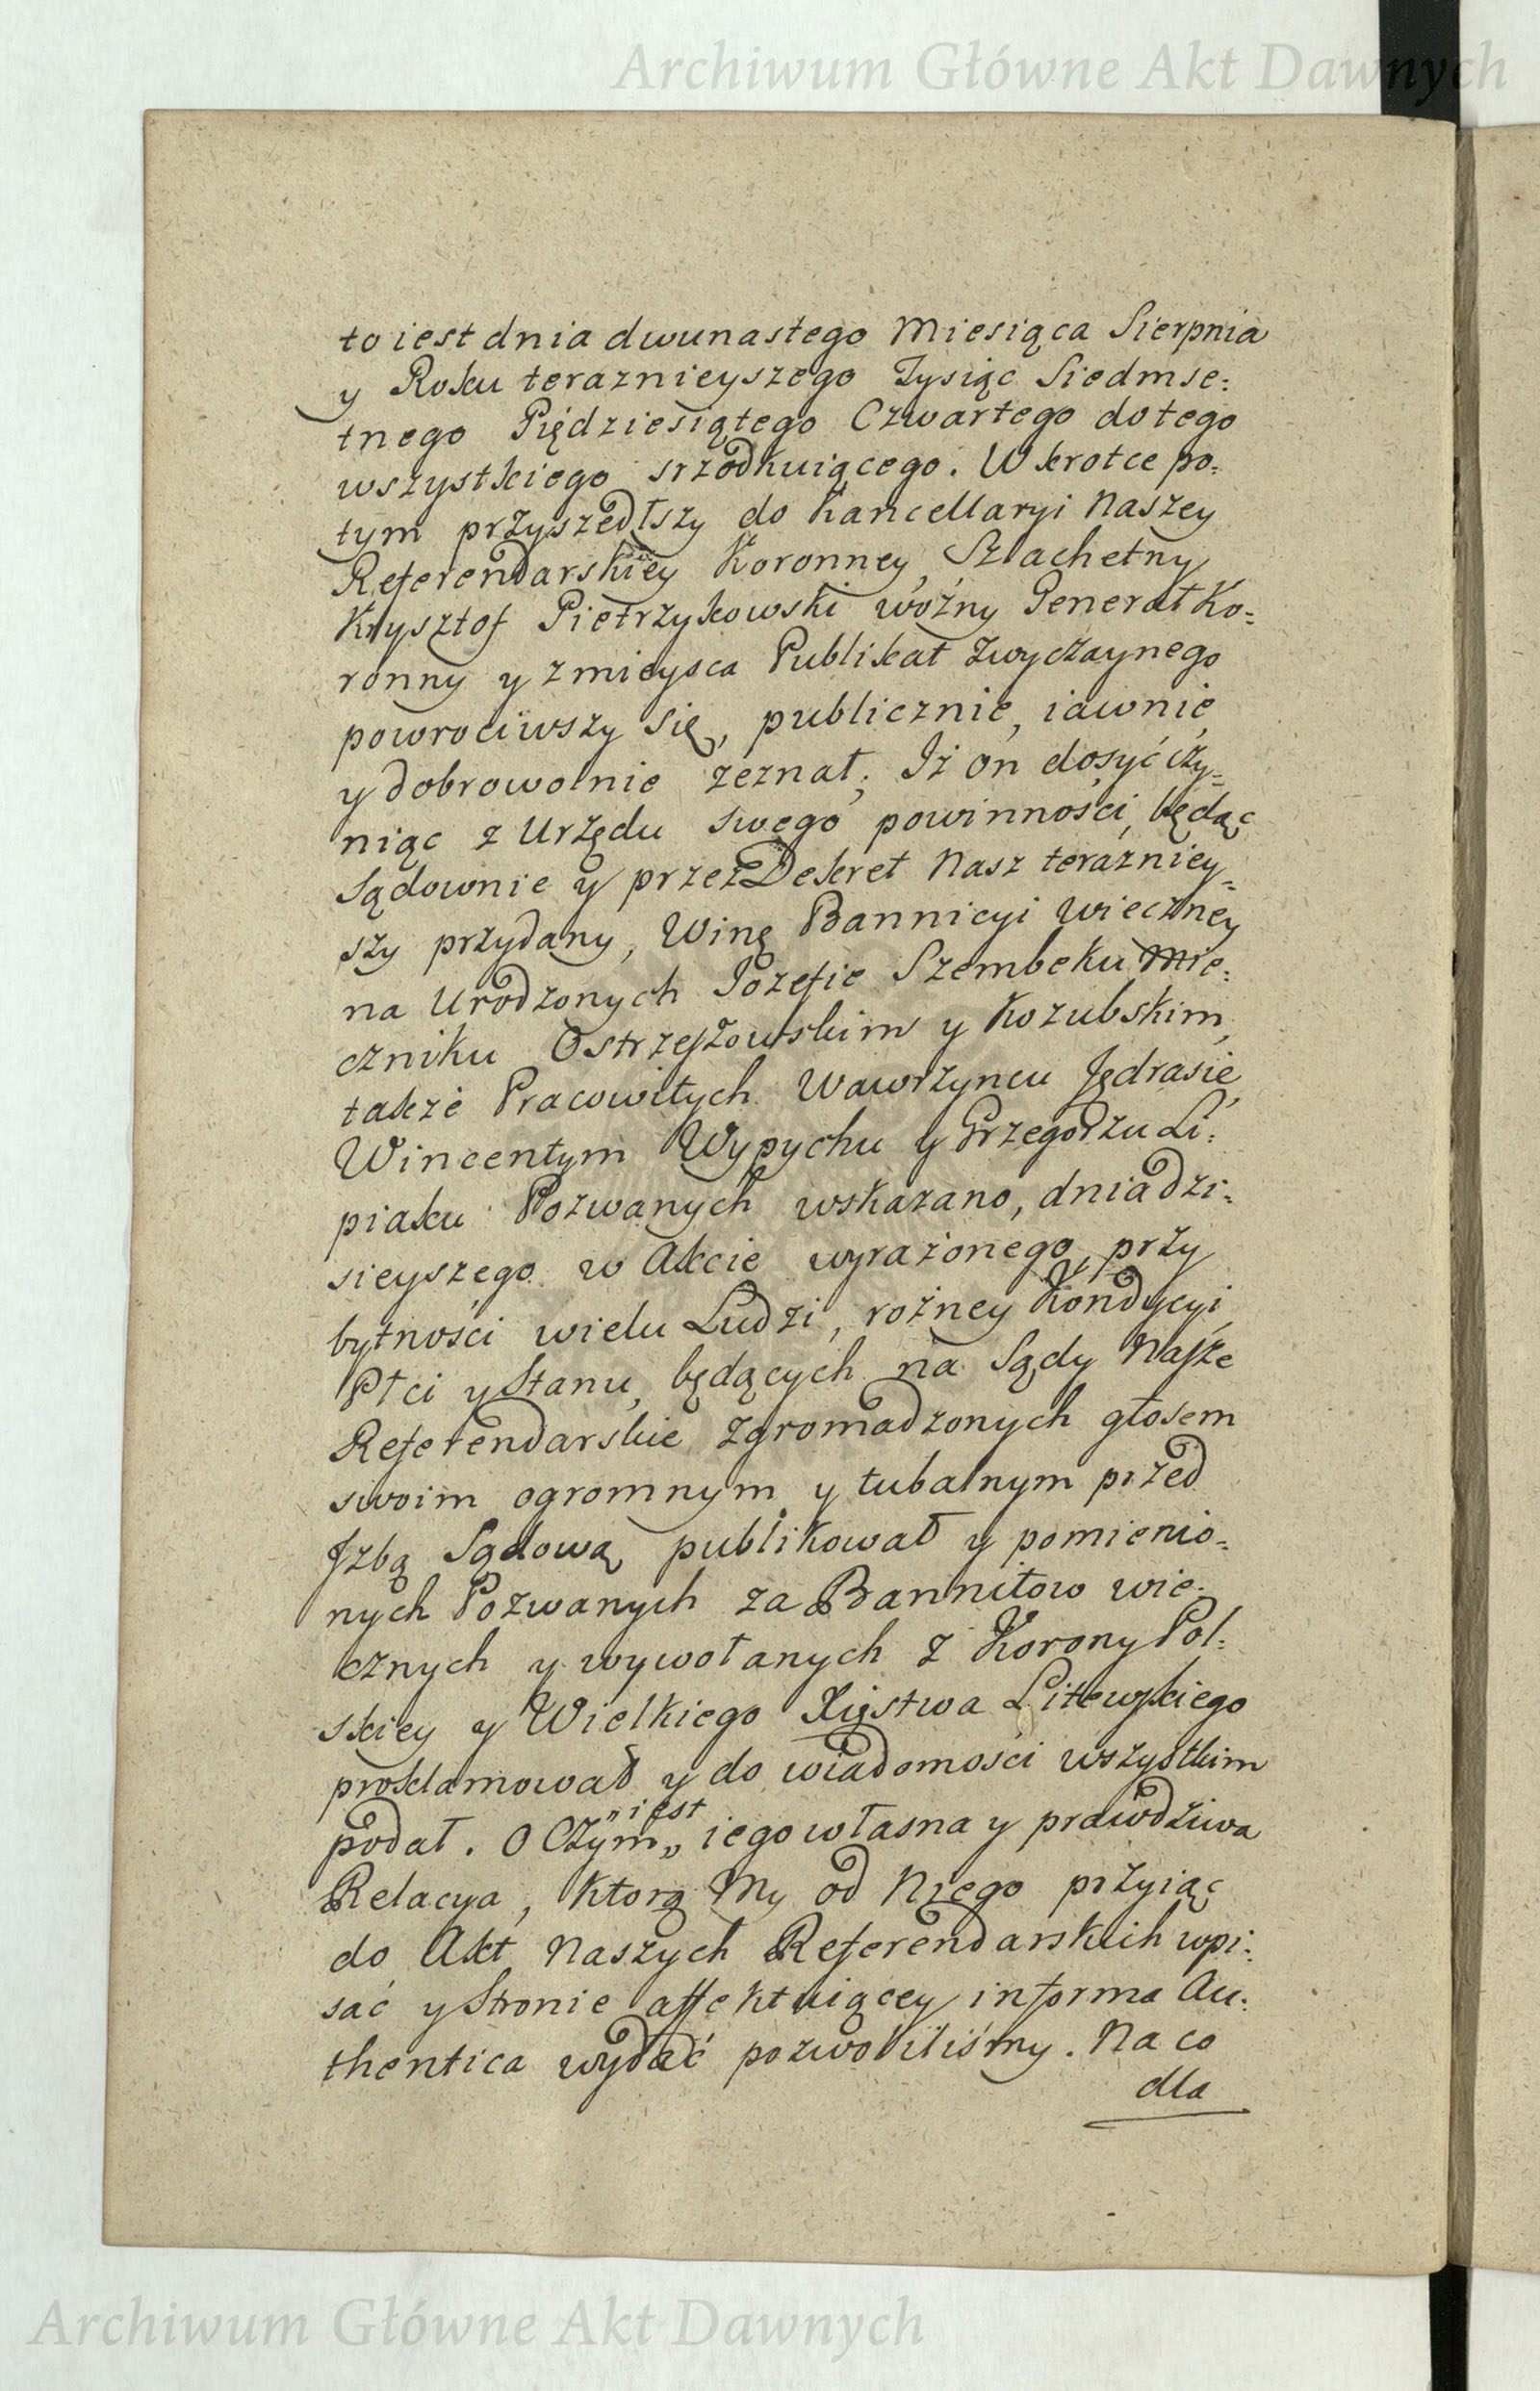 Archiwum Główne Akt Dawnych
to iest dnia dwunastego Miesiąca Sierpnia
y Roku teraznieyszego Tysiąc Siedmse:
tnego Piędziesiątego Czwartego do tego
wszystkiego srzodkuiącego. Wkrotce po:
tym przyszedłszy do Kancellaryi Naszey
Referendarskiey Koronney, Szlachetny
Krysztof Pietrzykowski woźny Generał Ko=
ronny y z mieysca Publikat zwyczaynego
powrociwszy się, publicznie, iawnie,
y dobrowolnie zeznał; Iż on dosyć czy=
niąc z Urzędu swego powinności, będąc
Sądownie y przez Dekret Nasz teraźniey=
szy przydany, Winę Bannicyi wieczney
na Urodzonych Jozefie Szembeku Mie:
czniku Ostrzeszowskim y Kozubskim,
także Pracowitych Wawrzyncu Jędrasie,
Wincentym Wypychu y Grzegorzu Li:
piaku Pozwanych wskazano, dnia dzi:
sieyszego w Akcie wyrażonego, przy
bytności wielu Ludzi, rożney Kondycyi,
Płci y Stanu, będących na Sądy Nasze
Referendarskie zgromadzonych głosem
swoim ogromnym y tubalnym przed
Jzbą Sądową publikował y pomienio=
nych Pozwanych za Bannitow wie:
cznych y wywołanych z Korony Pol:
skiey y Wielkiego Xięstwa Litewskiego
proklamował y do wiadomości wszystkim
podał. O Czym „iest„ iego własna y prawdziwa
Relacya, ktorą My od Niego przyiąc
do Akt Naszych Referendarskich wpi:
sać y Stronie affektuiącey in forma Au:
thentica wydać pozwoliliśmy. Na co
dla
Archiwum Główne Akt Dawnych